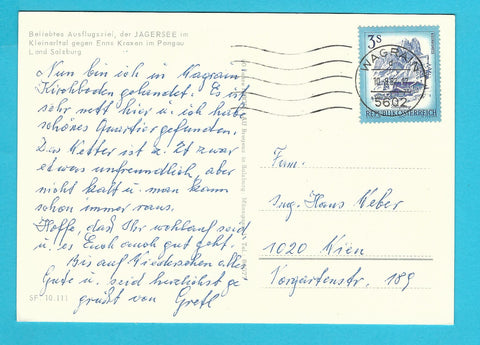 Beliebtes Ausflugsziel, der JÄGERSEE im
Kleinarltal gegen Enns Kraxen im Pongau
Land Salzburg
Nun bin ich in Wagrain
Kirchboden gelandet. Es ist
sehr nett hier u. ich habe
schönes Quartier gefunden.
Das Wetter ist z. Zt zwar
etwas unfreundlich, aber
nicht kalt u. man kann
schon immer raus.
Hoffe, daß Ihr wohlauf seid
u. es Euch auch gut geht.
Bis auf Wiedersehen alles
Gute u. seid herzlichst ge
grüßt von Gretl
SF 10.111
3S
REPUBLIK ÖSTERREICH
WAGRAIN
5602
Fam.
Ing. Hans Weber
1020 Wien
Vorgartenstr. 189